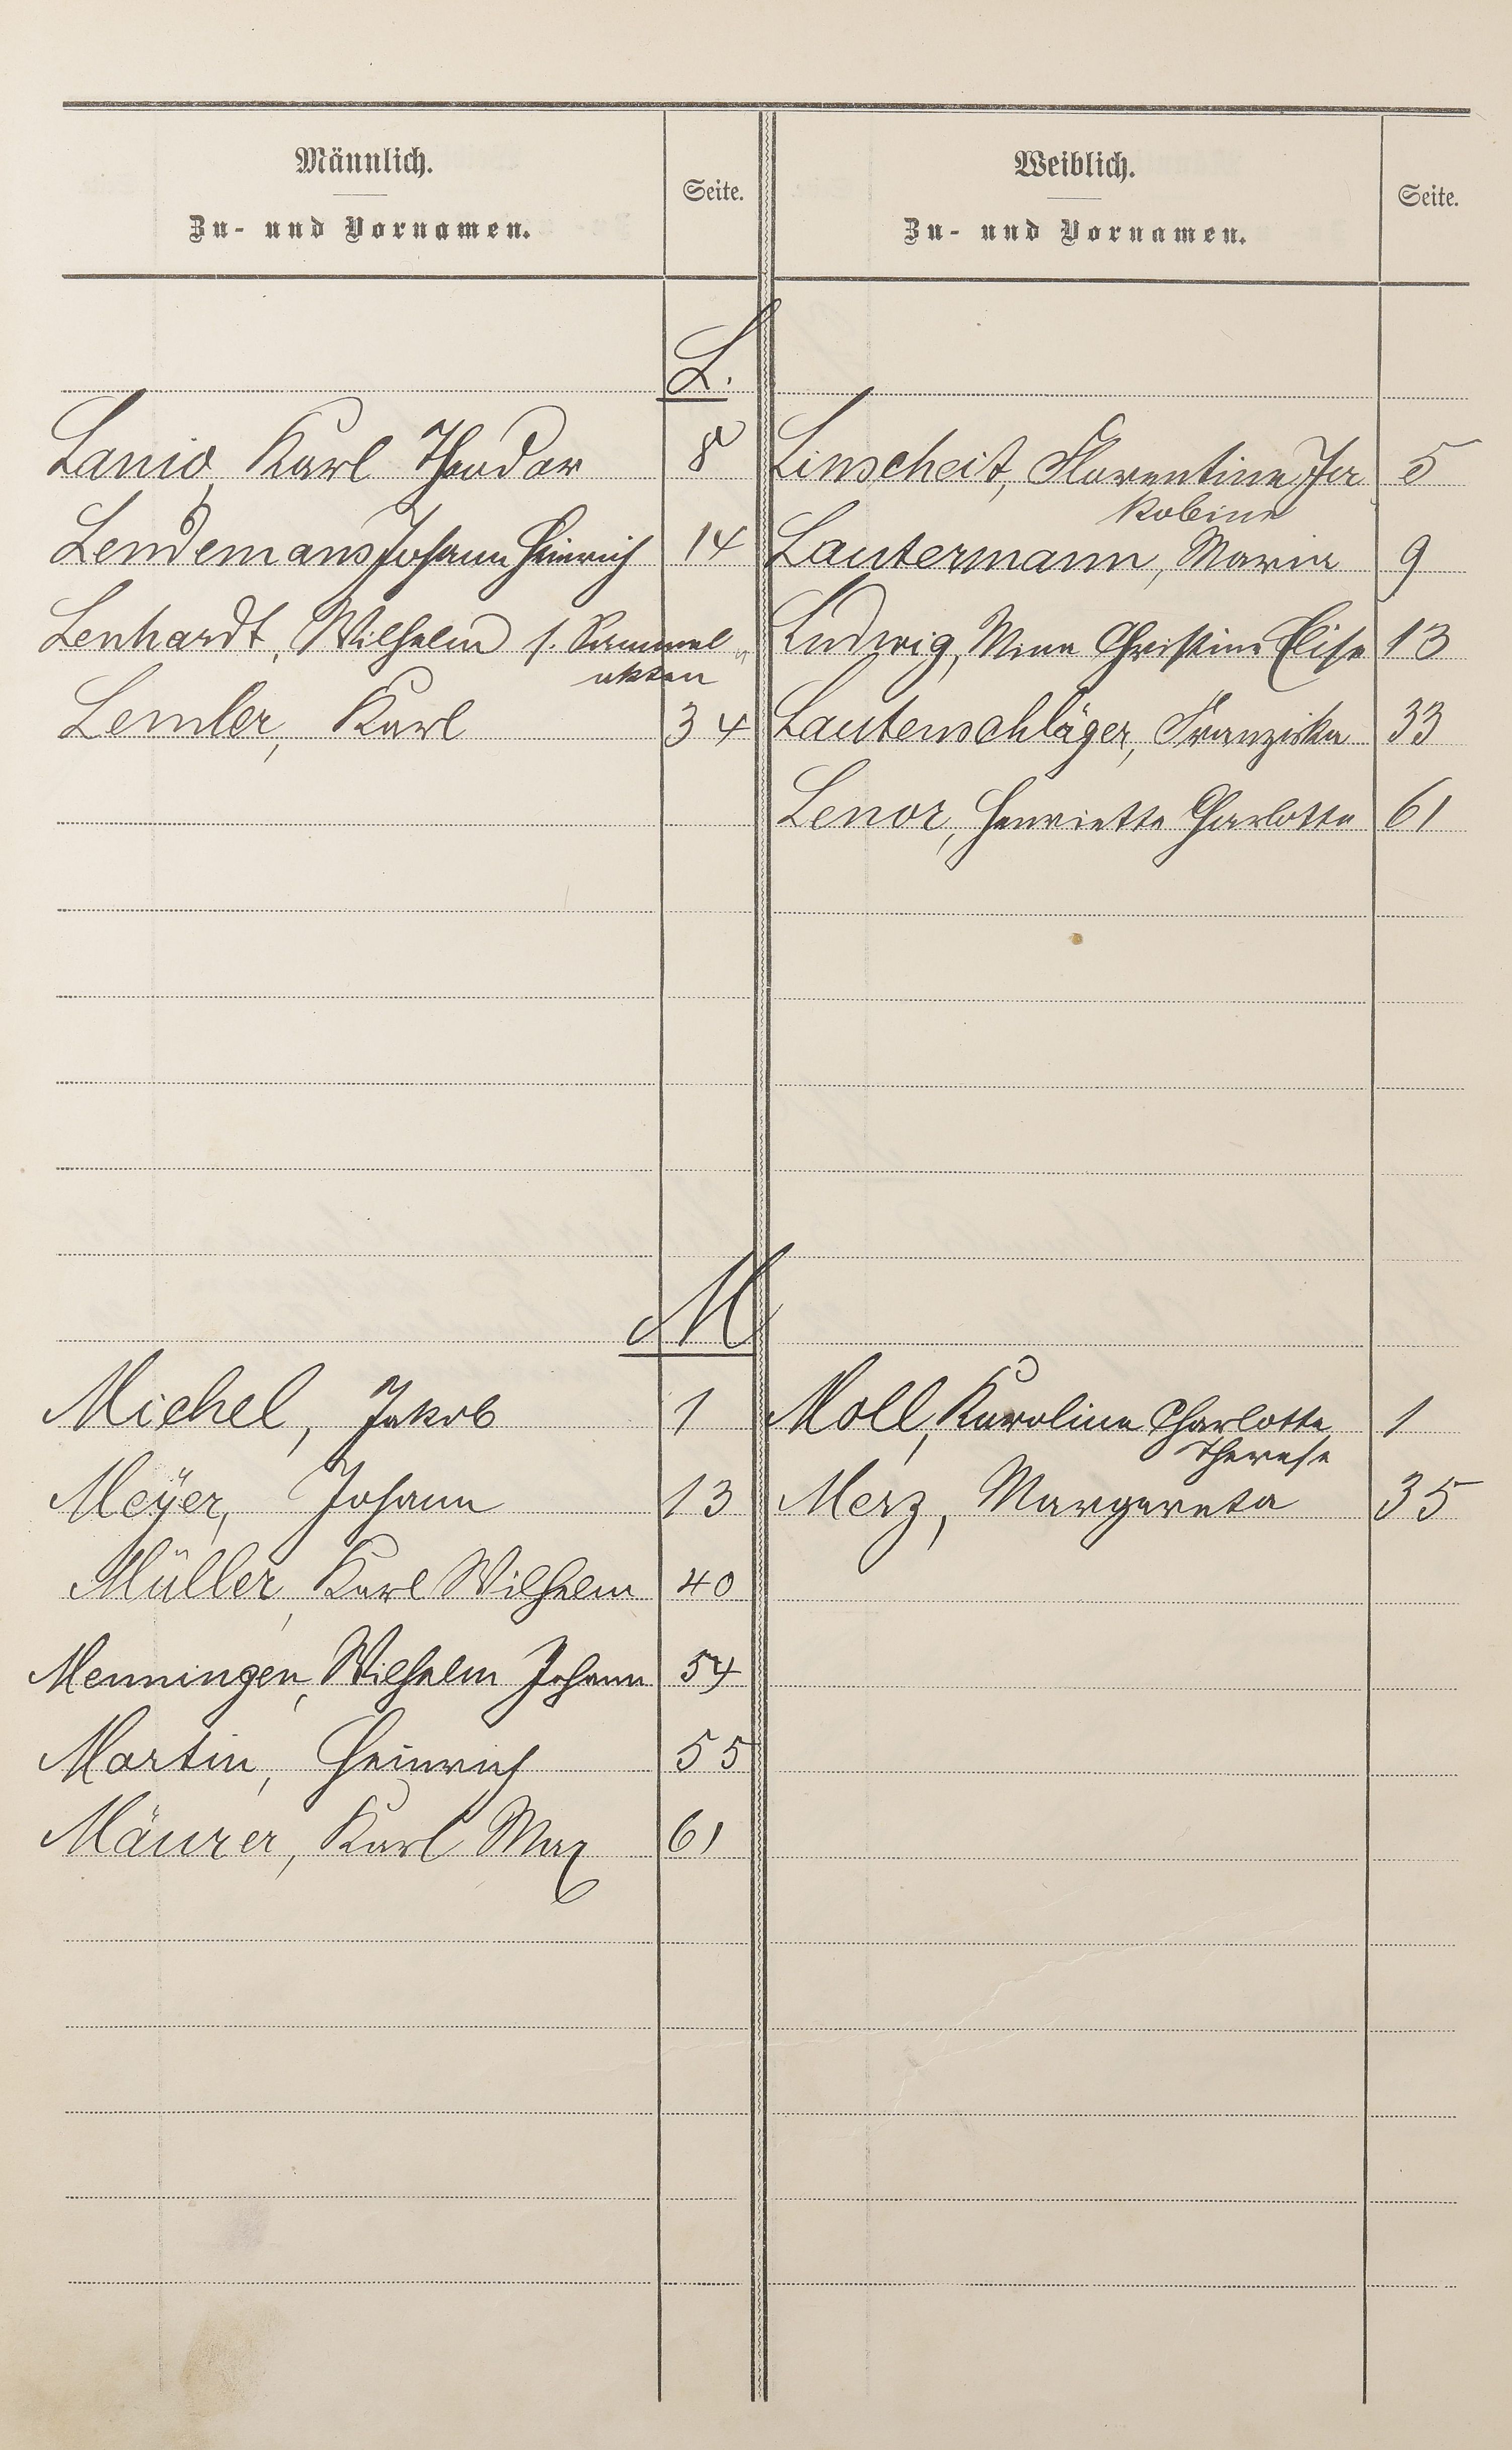 Männlich.
Zu- und Vornamen.
Seite.
Weiblich.
Zu- und Vornamen.
Seite.
L.
Lanio, Karl Theodor 8 Linscheit, Florentine Ja 5
kobine
Lendemans Johann Heinrich 14 Lautermann, Maria 9
Lenhardt, Wilhelm s. Sammel„ Ludwig, Mina Christine Elise 13
akten
Lemler, Karl 34 Lautenschläger, Franziska 33
Lenor, Henriette Charlotte 61
M
Michel, Jakob 1 Moll, Karoline Charlotte 1
Therese
Meÿer, Johann 13 Merz, Margareta 35
Müller, Karl Wilhelm 40
Menningen, Wilhelm Johann 54
Martin, Heinrich 55
Mäurer, Karl Max 61